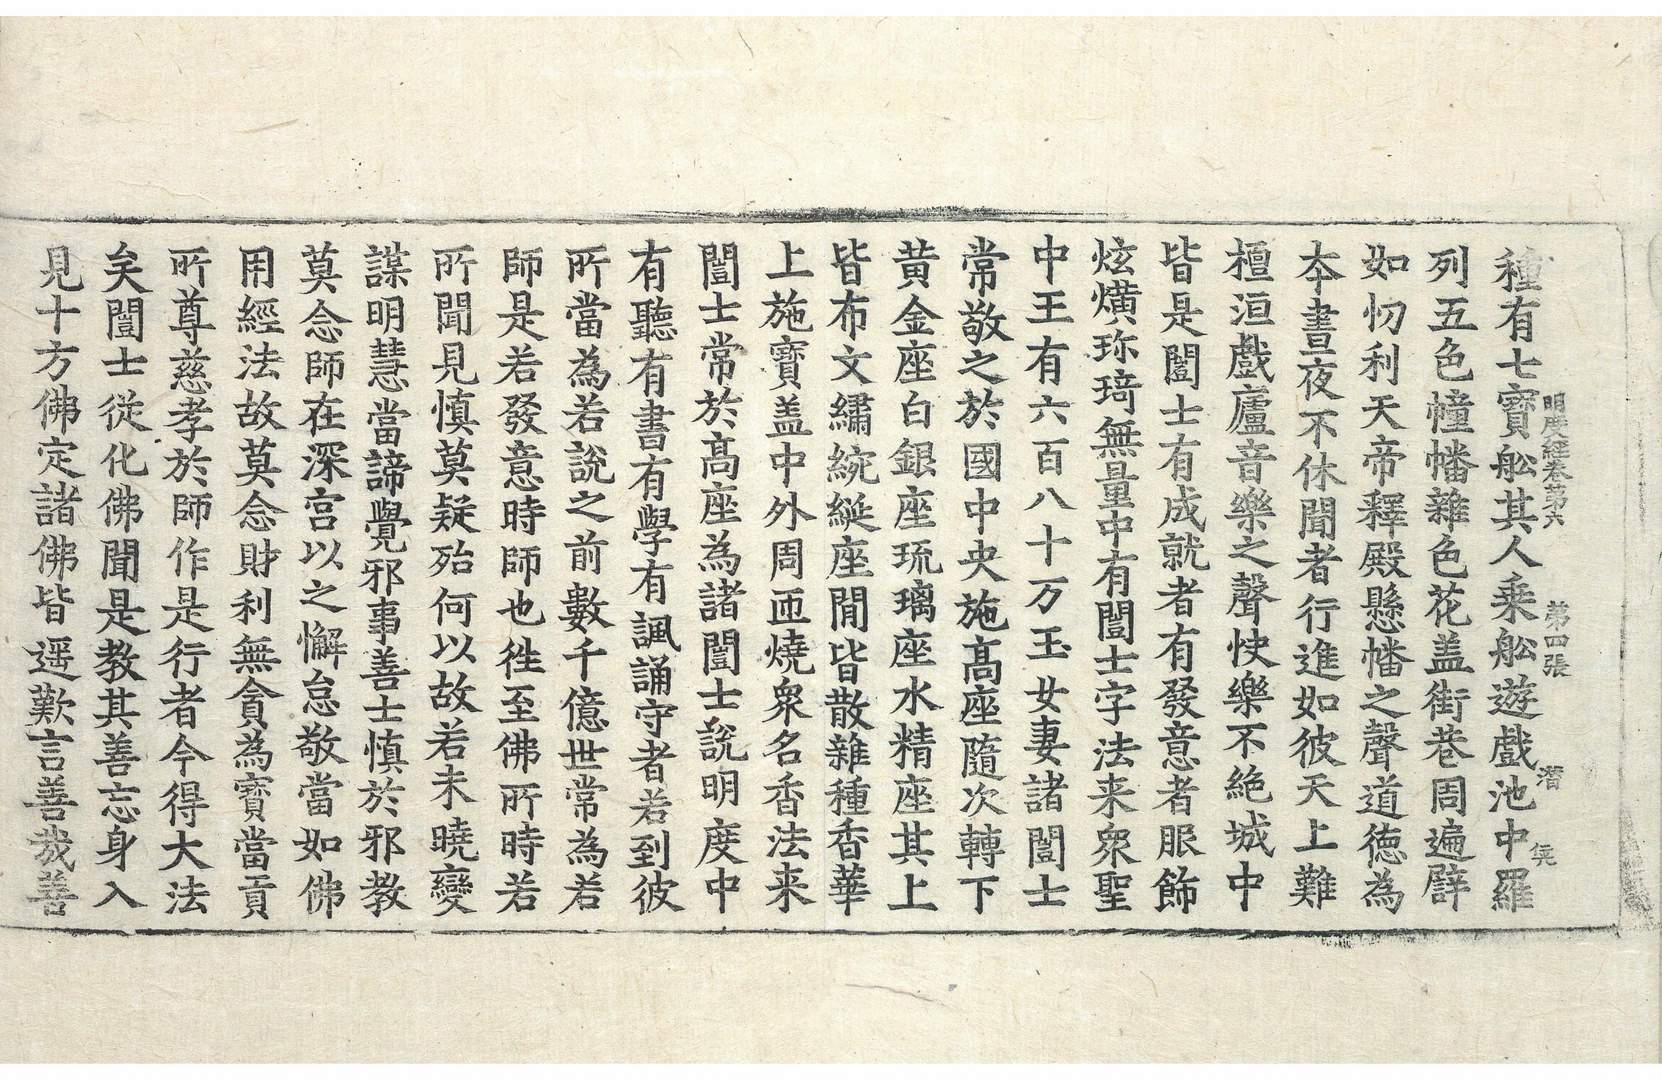 明度經卷第六 第四張 潛
種有七寶舩其人乗舩遊戲池中羅
列五色幢幡雜色花盖街巷周遍辟
如忉利天帝釋殿懸幡之聲道徳為
夲晝夜不休聞者行進如彼天上難
檀洹戲廬音樂之聲快樂不絶城中
皆是闓士有成就者有發意者服飾
炫熿珎琦無量中有闓士字法来衆聖
中王有六百八十万玉女妻諸闓士
常敬之於國中央施髙座隨次轉下
黄金座白銀座琉璃座水精座其上
皆布文繡綩綖座閒皆散雜種香華
上施寶盖中外周匝燒衆名香法来
闓士常於髙座為諸闓士說明度中
有聽有書有學有諷誦守者若到彼
所當為若說之前數千億世常為若
師是若發意時師也徃至佛所時若
所聞見慎莫疑殆何以故若未曉變
謀明慧當諦覺邪事善士慎於邪教
莫念師在深宫以之懈怠敬當如佛
用經法故莫念財利無貪為寶當貢
所尊慈孝於師作是行者今得大法
矣闓士従化佛聞是教其善忘身入
見十方佛定諸佛皆遥歎言善㢤善